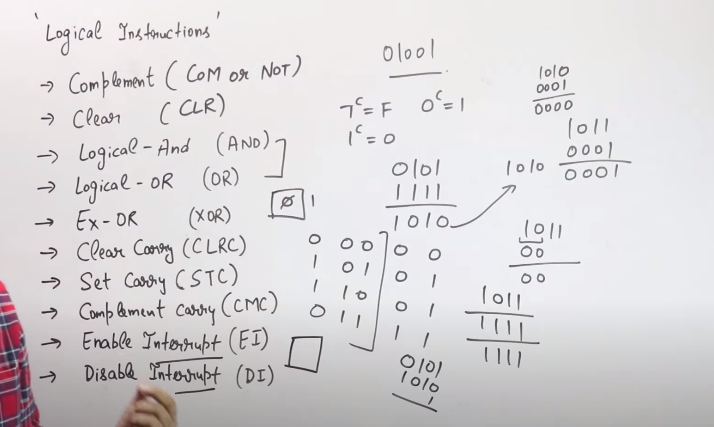 'Logical Instructions'
→ Complement (COM or NOT)
→ Clear (CLR)
→ Logical-And (AND)
→ Logical-OR (OR)
→ Ex-OR (XOR)
→ Clear Carry (CLRC)
→ Set Carry (STC)
→ Complement Carry (CMC)
→ Enable Interrupt (EI)
→ Disable Interrupt (DI)
01001
0ᶜ=1
1ᶜ=0
0101
1111
1010
0 1
0 00
1 01
1 10
0 11
0 0
0 1
0 1
1 1
0101
1010
1
1010
0001
0000
1011
0001
0001
1010
1011
00
00
1011
1111
1111